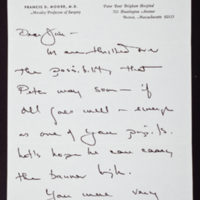 FRANCIS D. MOORE, M.D.
Moseley Professor of Surgery
Peter Bent Brigham Hospital
721 Huntington Avenue
Boston, Massachusetts 02115
Dear Jan -
We are thrilled over
the possibility that
Peter may soon - if
all goes well - emerge
as one of your
let's hope he can carry
the banner high.
You were very